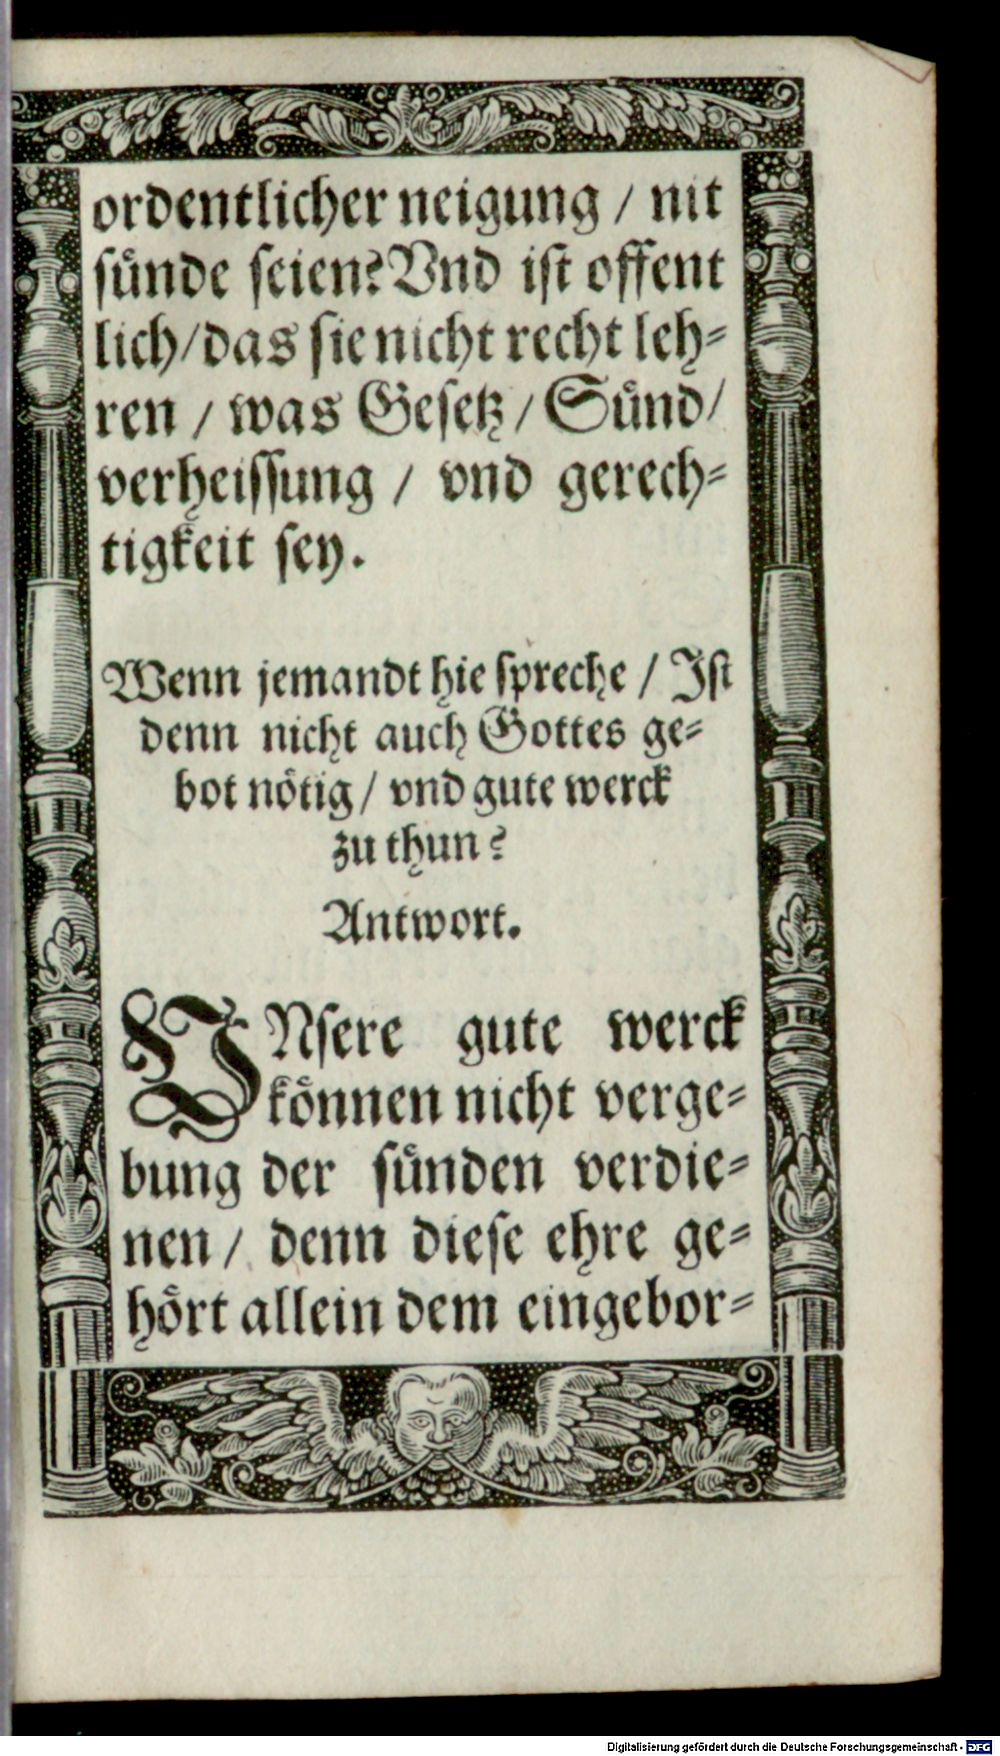 ordentlicher neigung / nit
suͤnde seien? Vnd ist offent
lich/das sie nicht recht leh⸗
ren / was Gesetz / Suͤnd/
verheissung / vnd gerech⸗
tigkeit sey.
Wenn jemandt hie spreche / Ist
denn nicht auch Gottes ge⸗
bot noͤtig / vnd gute werck
zu thun?
Antwort.
VNsere gute werck
koͤnnen nicht verge⸗
bung der suͤnden verdie⸗
nen / denn diese ehre ge⸗
hoͤrt allein dem eingebor⸗
Digitalisierung gefördert durch die Deutsche Forschungsgemeinschaft - DFG